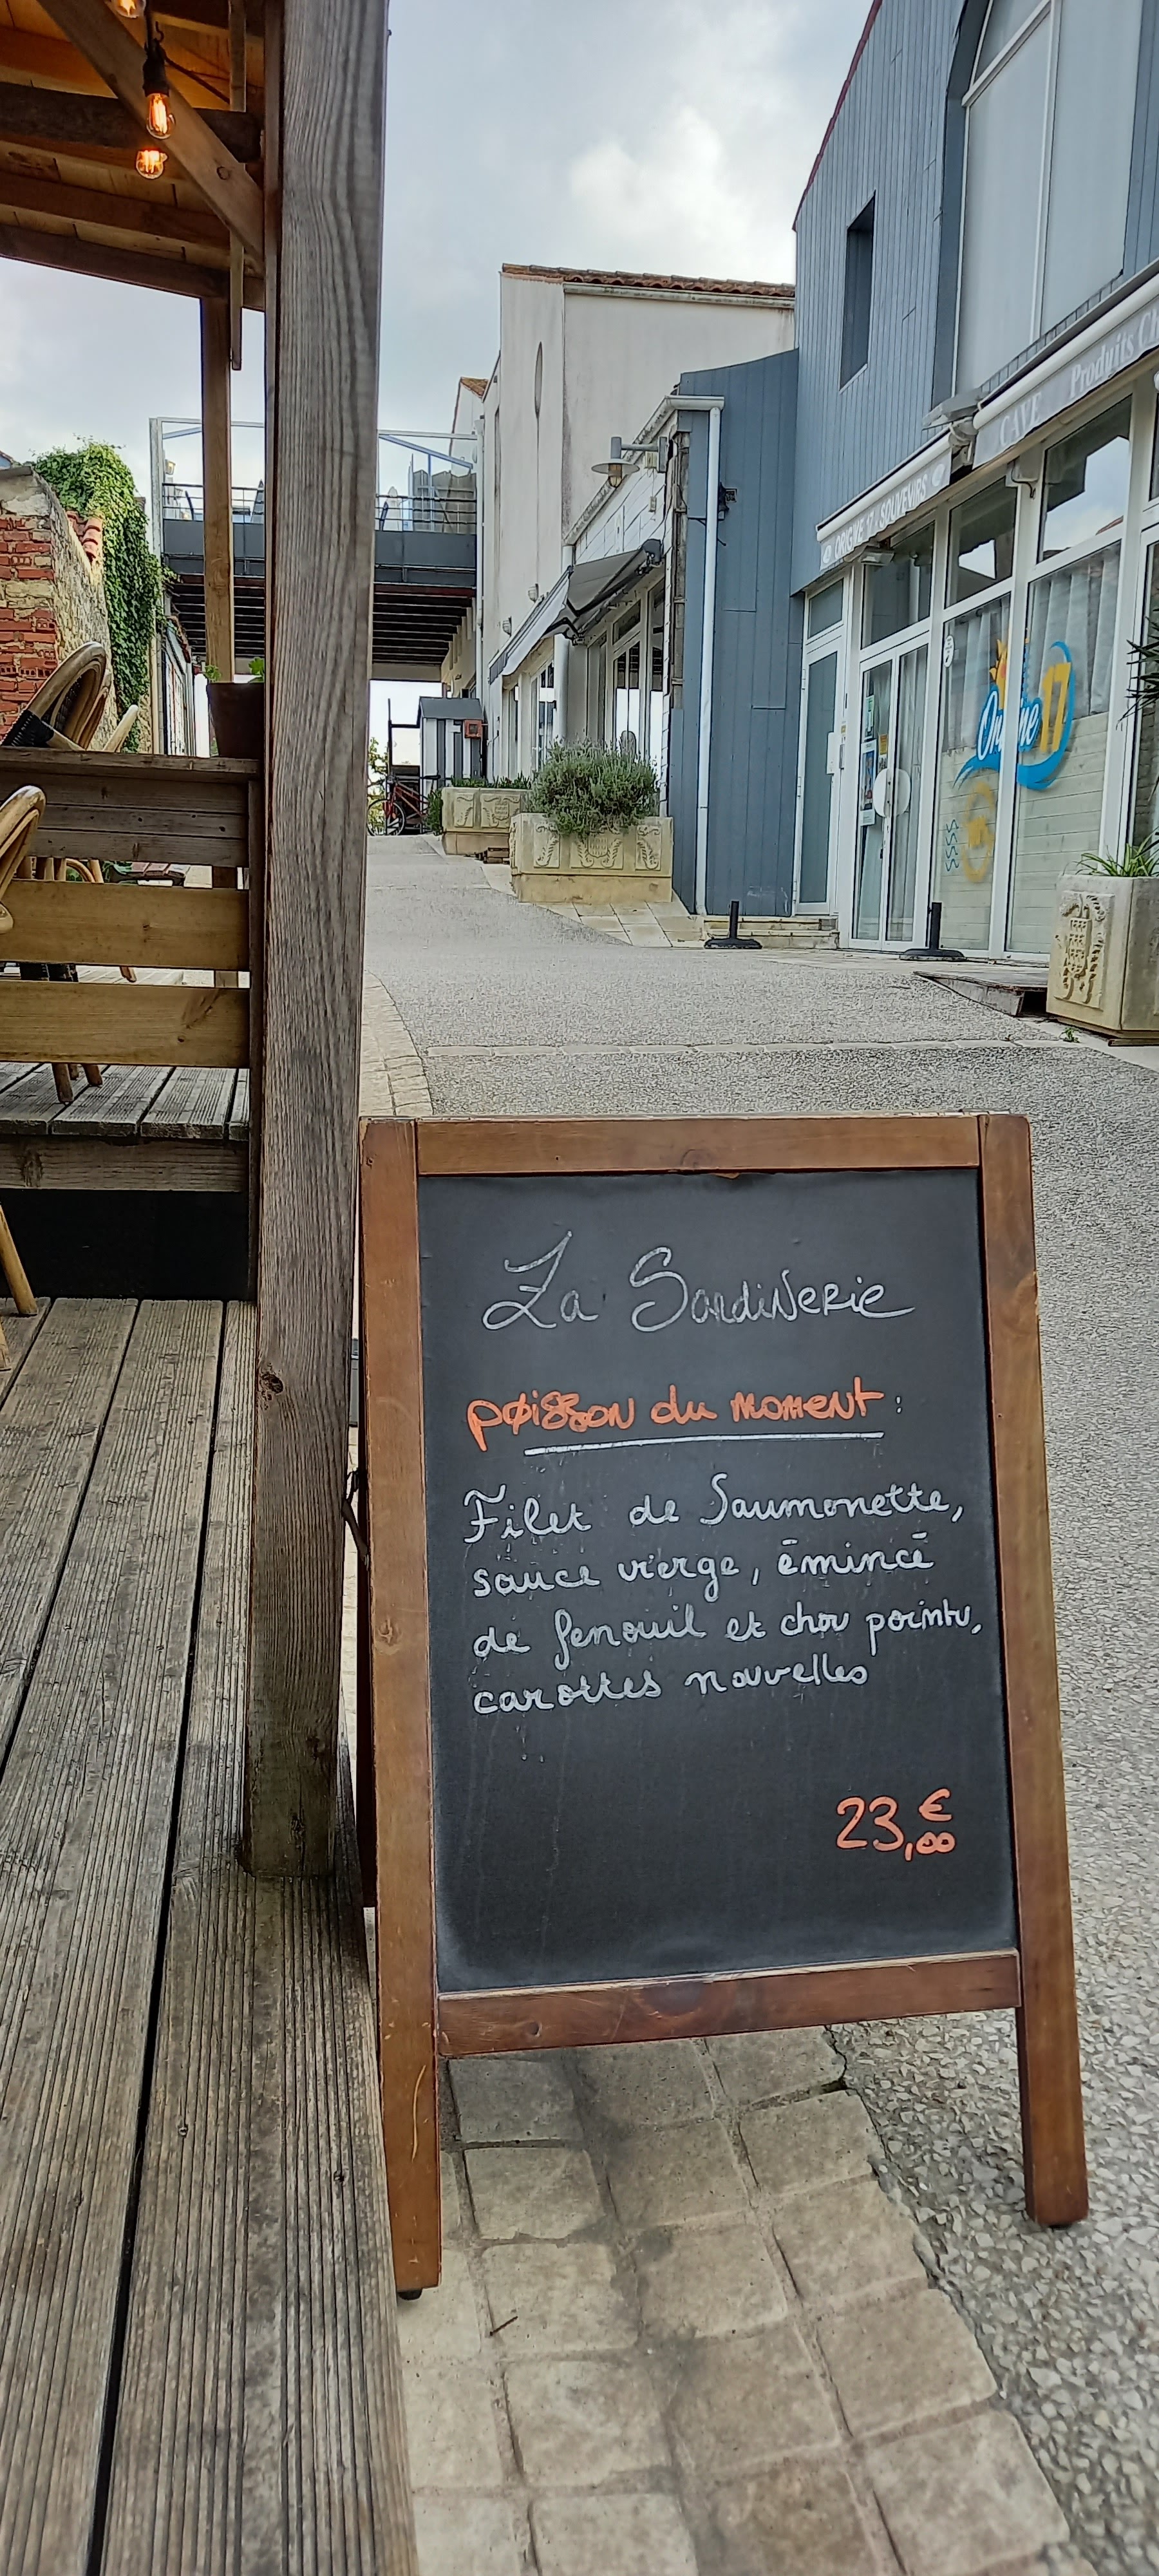 Produits C
CAVE
ORIGINE 17 SOUVENIRS
Origine 17
La SardiNeRie
poisson du moment :
Filet de Saumonette,
sauce vierge, émincé
de fenouil et chou pointu,
carottes nouvelles
23,00 €